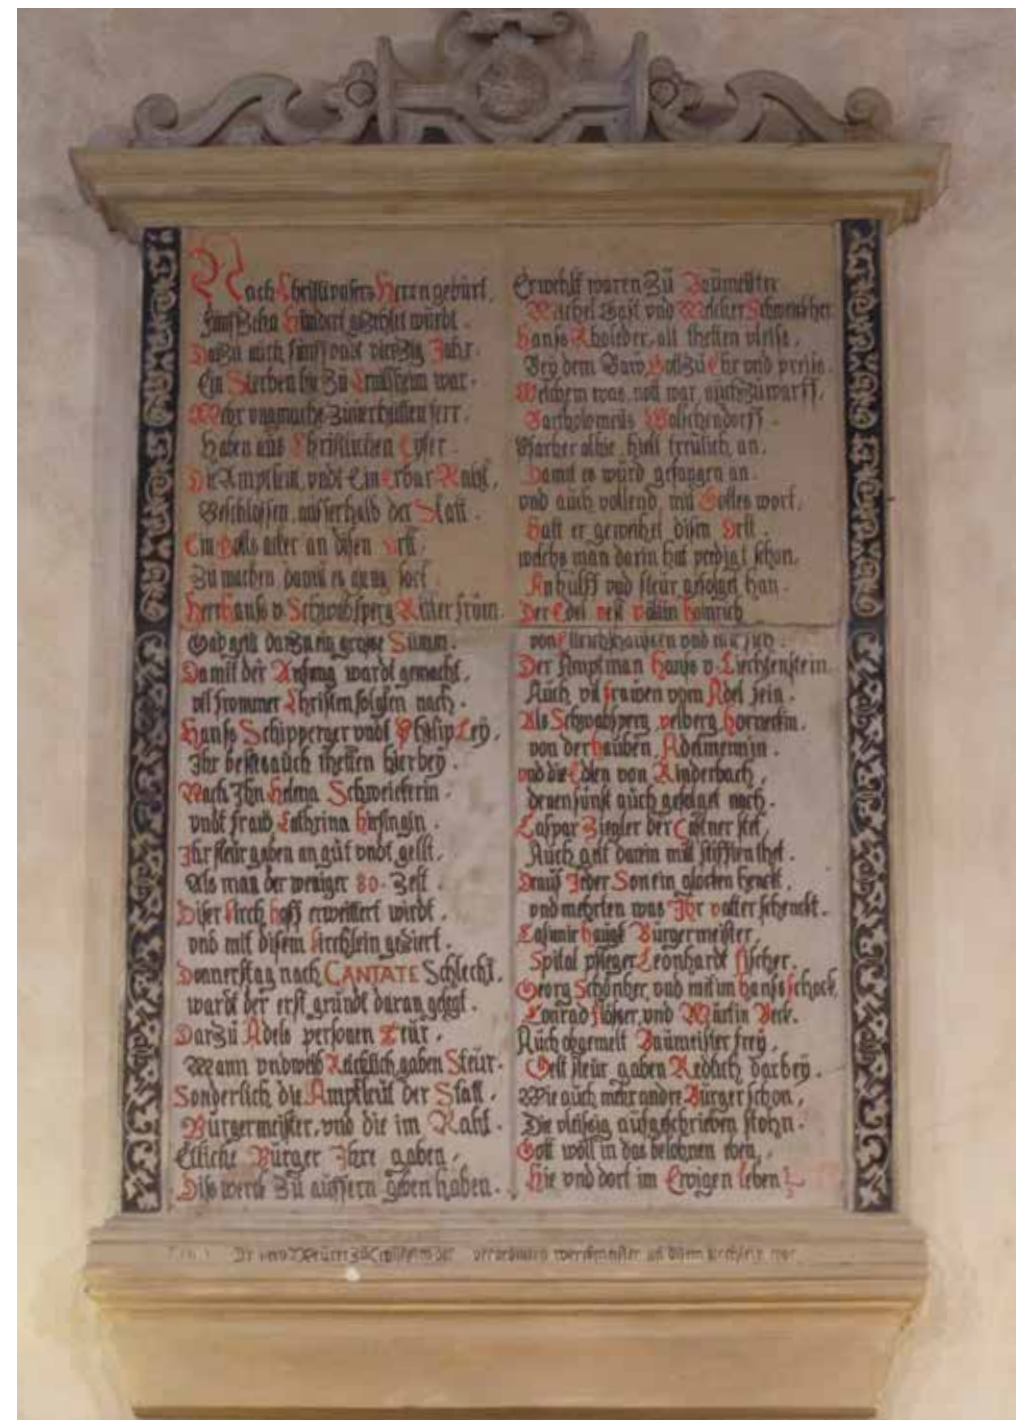 Nach Christi vnsers Herren gebürt,
fünff Zehn Hündert gezehlet würdt.
Dazü auch fünff vndt vierzig Jahr.
Ein Sterben hie Zü Crailsheim war.
Mehr vngmachs
Haben aüs Christlichen Eyfer.
Die Amptleüt, vndt Ein Erbar Raht,
Beschlossen, ausserhalb der Statt.
Ein Gotts acker an disen Ortt,
Zü machen damit es gung fort
Herr Hanss v. Schwabsperg Ritter from.
Gab gelt darZu ein grosse Sümm.
Damit der Anfang wardt gemacht,
vil frommer Christen folgten nach.
Hanss Schipperger vndt Philip Ley,
Ihr bestes aüch thetten hierbey.
Nach Ihn Helena Schweickerin.
vndt fraw Cathrina
Ihr steür gaben an güt vndt gellt.
Als man der weniger 80. Zelt.
Diser Kirch hoff erweittert wirdt.
vnd mit disem kirchlein geziert.
Donnerstag nach CANTATE Schlecht.
wardt der erst gründt daran gelegt.
DarZü Adels personen Trür.
Mann vnd weib Reichlich gaben Steür.
Sonderlich die Amptleüt der Statt.
Bürgermeister, vnd die im Raht.
Ettliche Bürger Ihre gaben,
Diss werck Zü aüssern geben haben.
Erwehlt waren Zü Baümeister
Michel Bast vnd Melcher
Hanss Aholeder, all thetten vleiss,
Bey dem Baw, Gott Zü Ehr vnd preiss.
Welchem was, nott war, auch Zü warff,
Bartholomeüs Wolschendorff.
Pfarher alhie, hielt treülich, an.
Damit es würd gefangen an.
vnd auch vollend, mit Gottes wort,
Hatt er geweihet disen Ortt.
welchs man darin hat predigt schon.
An hülff vnd steür gefolget han.
Der Edel vest
von Ellrichshausen vnd mit sich.
Der Amptman Hanss v. Liechtenstein.
Aüch vil frawen vom Adel sein.
Als Schwabsperg, velberg, Horneckin.
von der Haüben, Adelmennin.
vnd die Edlen von Rinderbach,
denen sünst aüch gefolget nach.
Caspar Ziegler der Castner stet,
Aüch gelt darein mitt stifften thet.
Drauff Jeder Son ein glocken henckt,
vnd mehrten was Ihr vatter schenckt.
Casimir Haügk Bürgermeister,
Spital pfleger Leonhardt fischer.
Georg Schönher, vnd mit im Hanss schock,
Conrad flösser, vnd Martin Beck.
Aüch obgemelt Baümeister frey,
Gelt steür gaben Redlich darbey.
Wie auch mehr andre Bürger schon,
Die vleissig aufgeschrieben stohn.
Gott wöll in das belohnen eben,
Hie vnd dort im Ewigen leben
verordneter werckmeister an disem kirchlein war